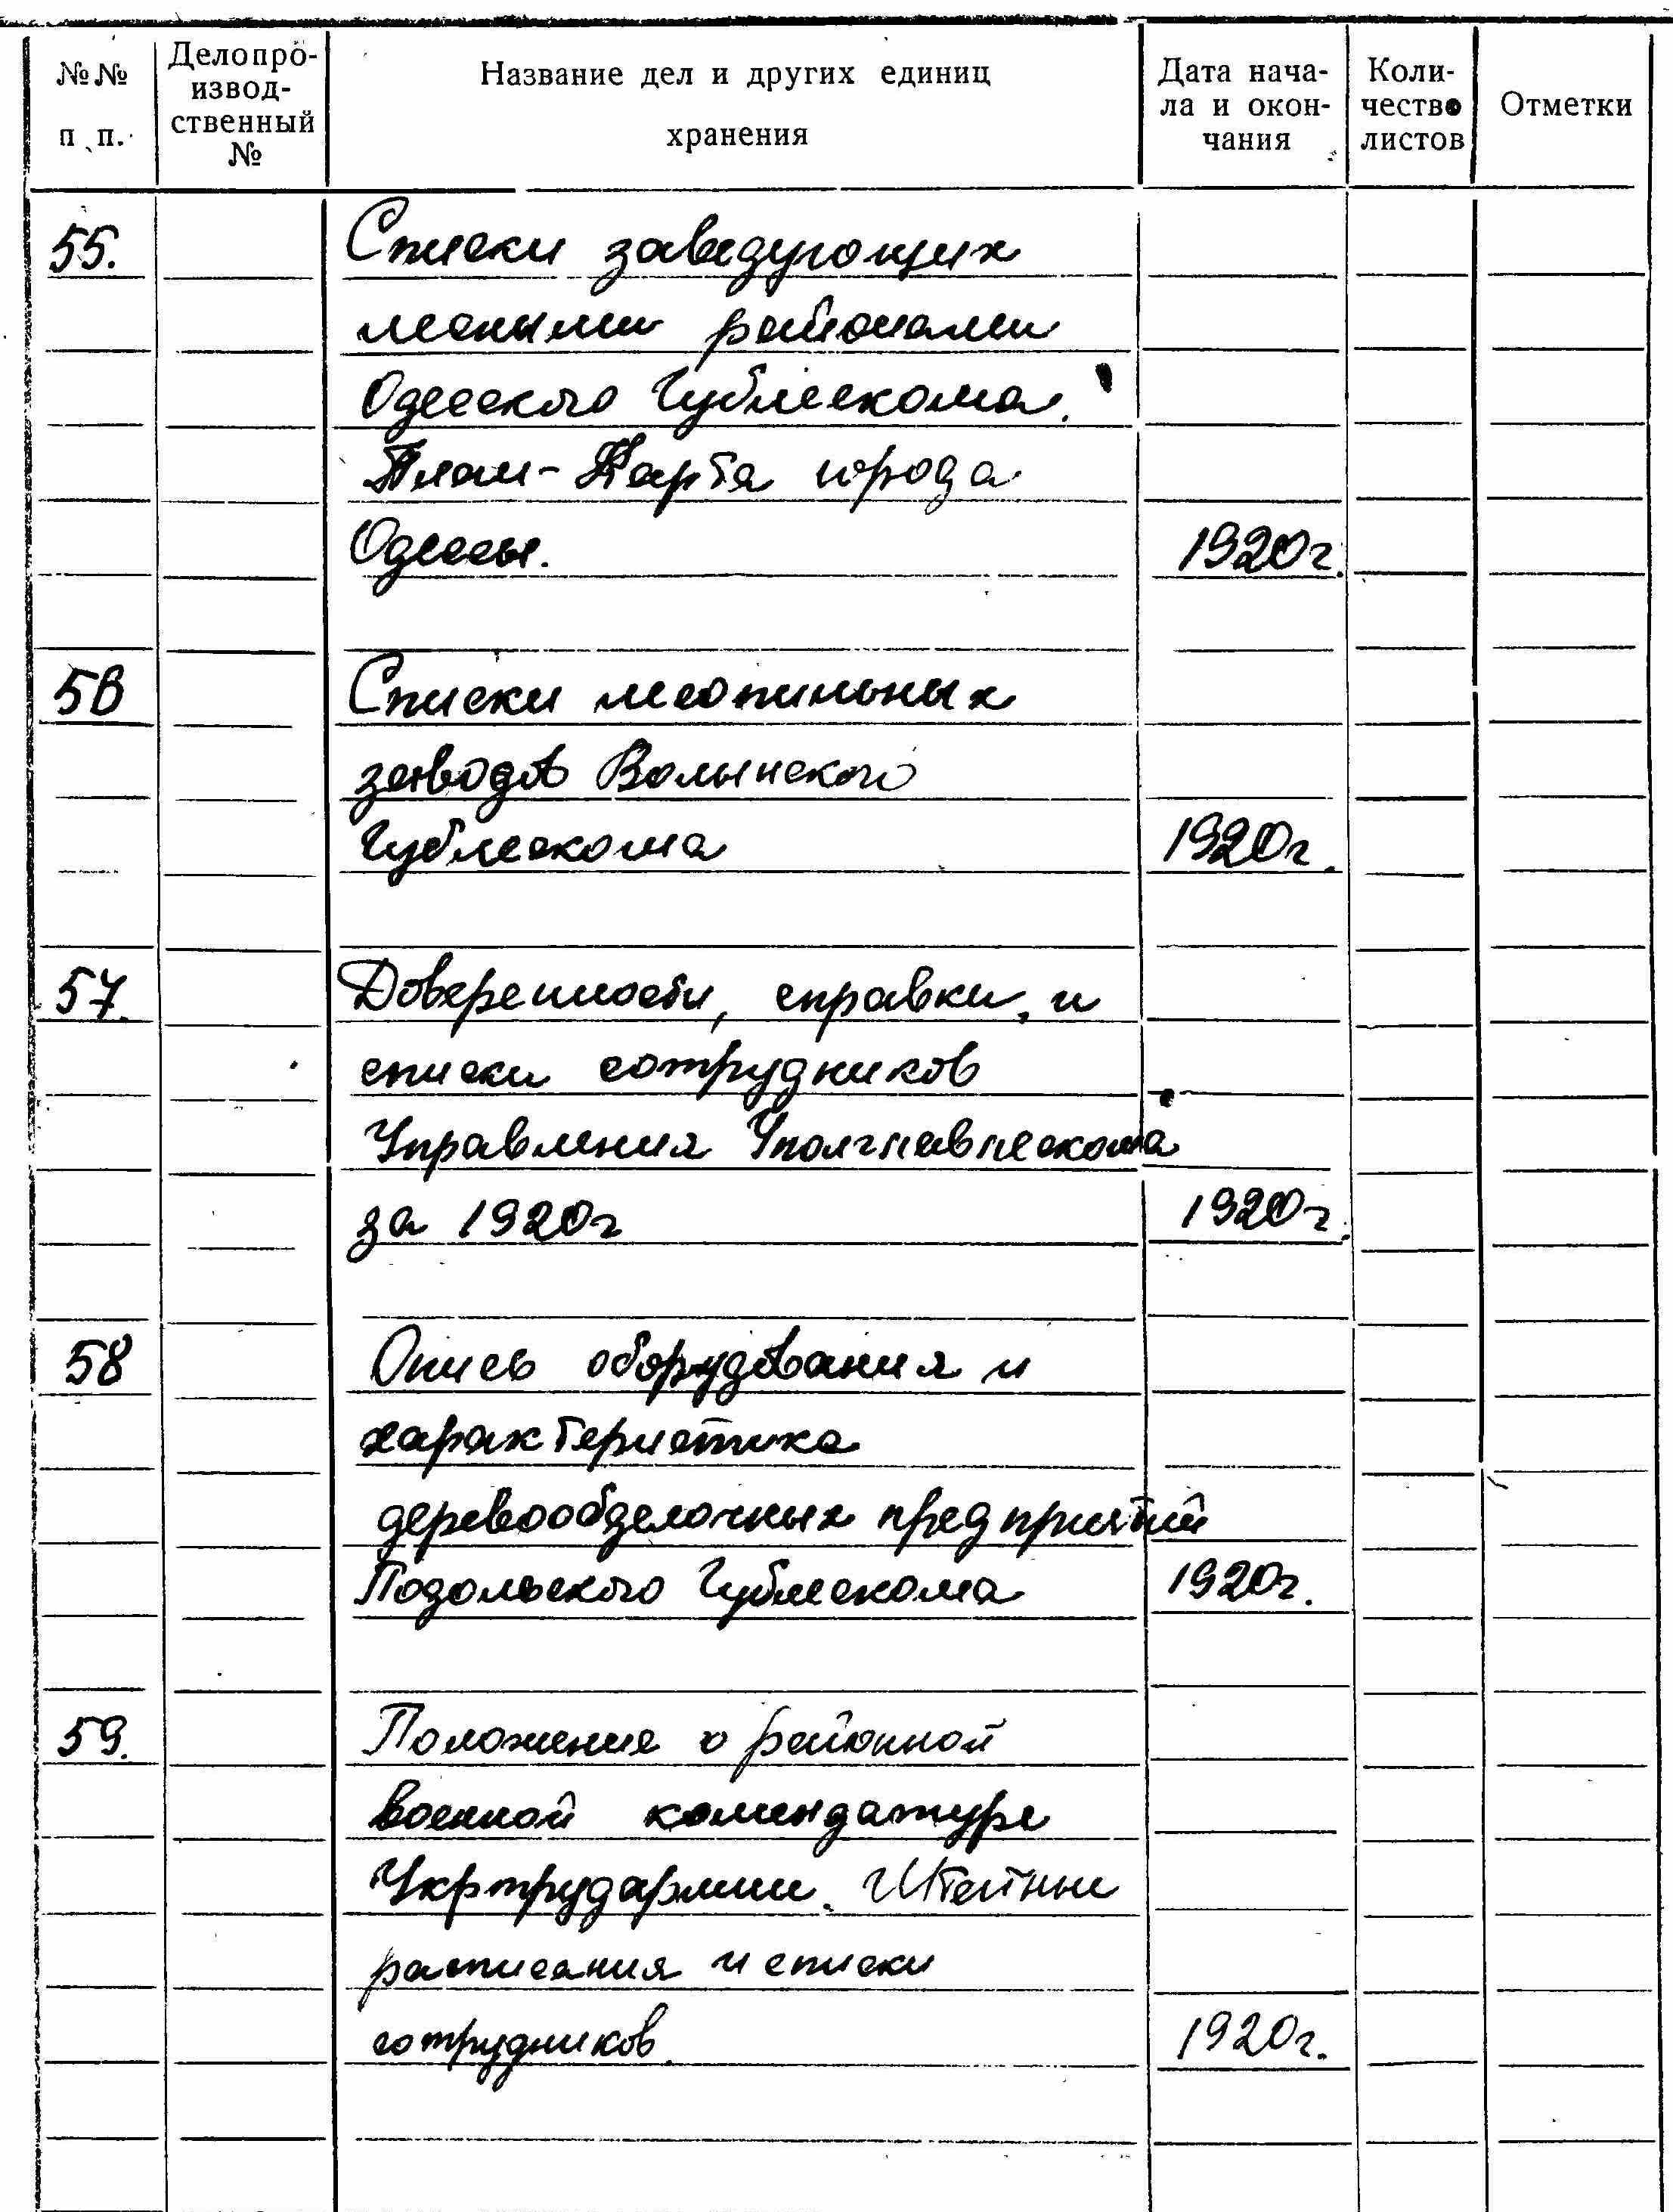 №№ п. п.
Делопроизводственный №
Название дел и других единиц хранения
Дата начала и окончания
Количество листов
Отметки
55.
Списки заведующих
лесными районами
Одесского Гублескома.
План-Карта города
Одессы. 1920г.
56 Списки лесопильных
заводов Волынского
Гублескома 1920г.
57. Доверенности, справки, и
списки сотрудников
Управления Уполглавлескома
за 1920г 1920г.
58 Опись оборудования и
характеристика
деревообделочных предприятий
Подольского Гублескома 1920г.
59. Положение о районной
военной комендатуре
Укртрудармии. Штатные
расписания и списки
сотрудников. 1920г.